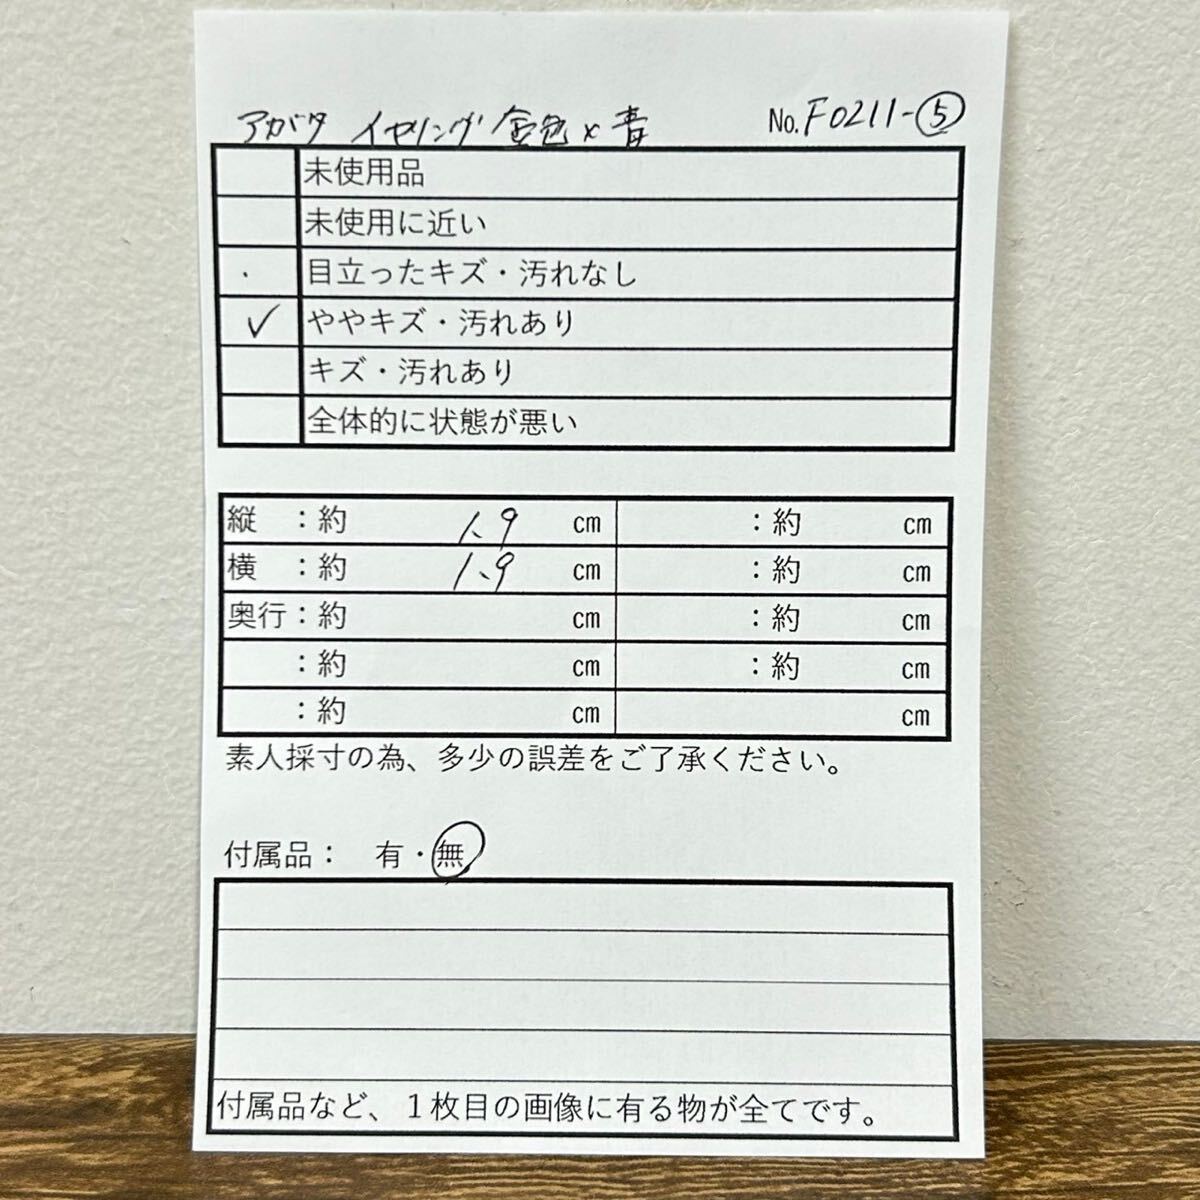 アガタ イヤリング 金色×青 No.F0211-⑤
未使用品
未使用に近い
目立ったキズ・汚れなし
✓ ややキズ・汚れあり
キズ・汚れあり
全体的に状態が悪い
縦 ：約 1.9 cm ：約 cm
横 ：約 1.9 cm ：約 cm
奥行：約 cm ：約 cm
：約 cm ：約 cm
：約 cm cm
素人採寸の為、多少の誤差をご了承ください。
付属品： 有・無
付属品など、１枚目の画像に有る物が全てです。